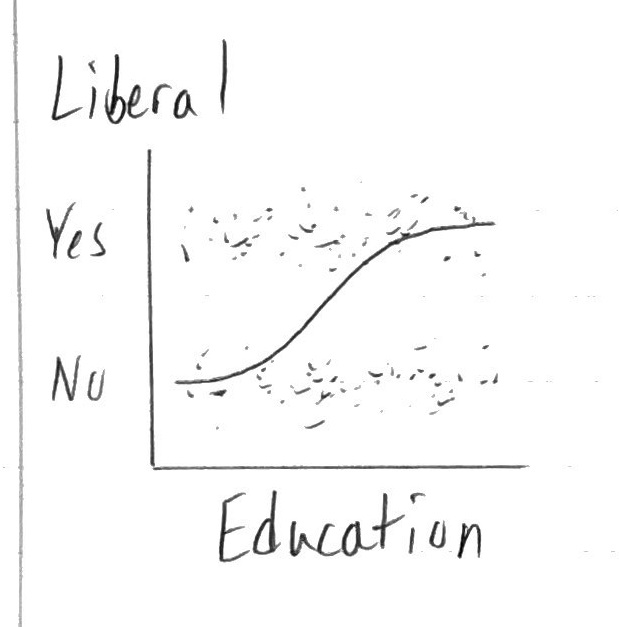 Liberal
Yes
No
Education